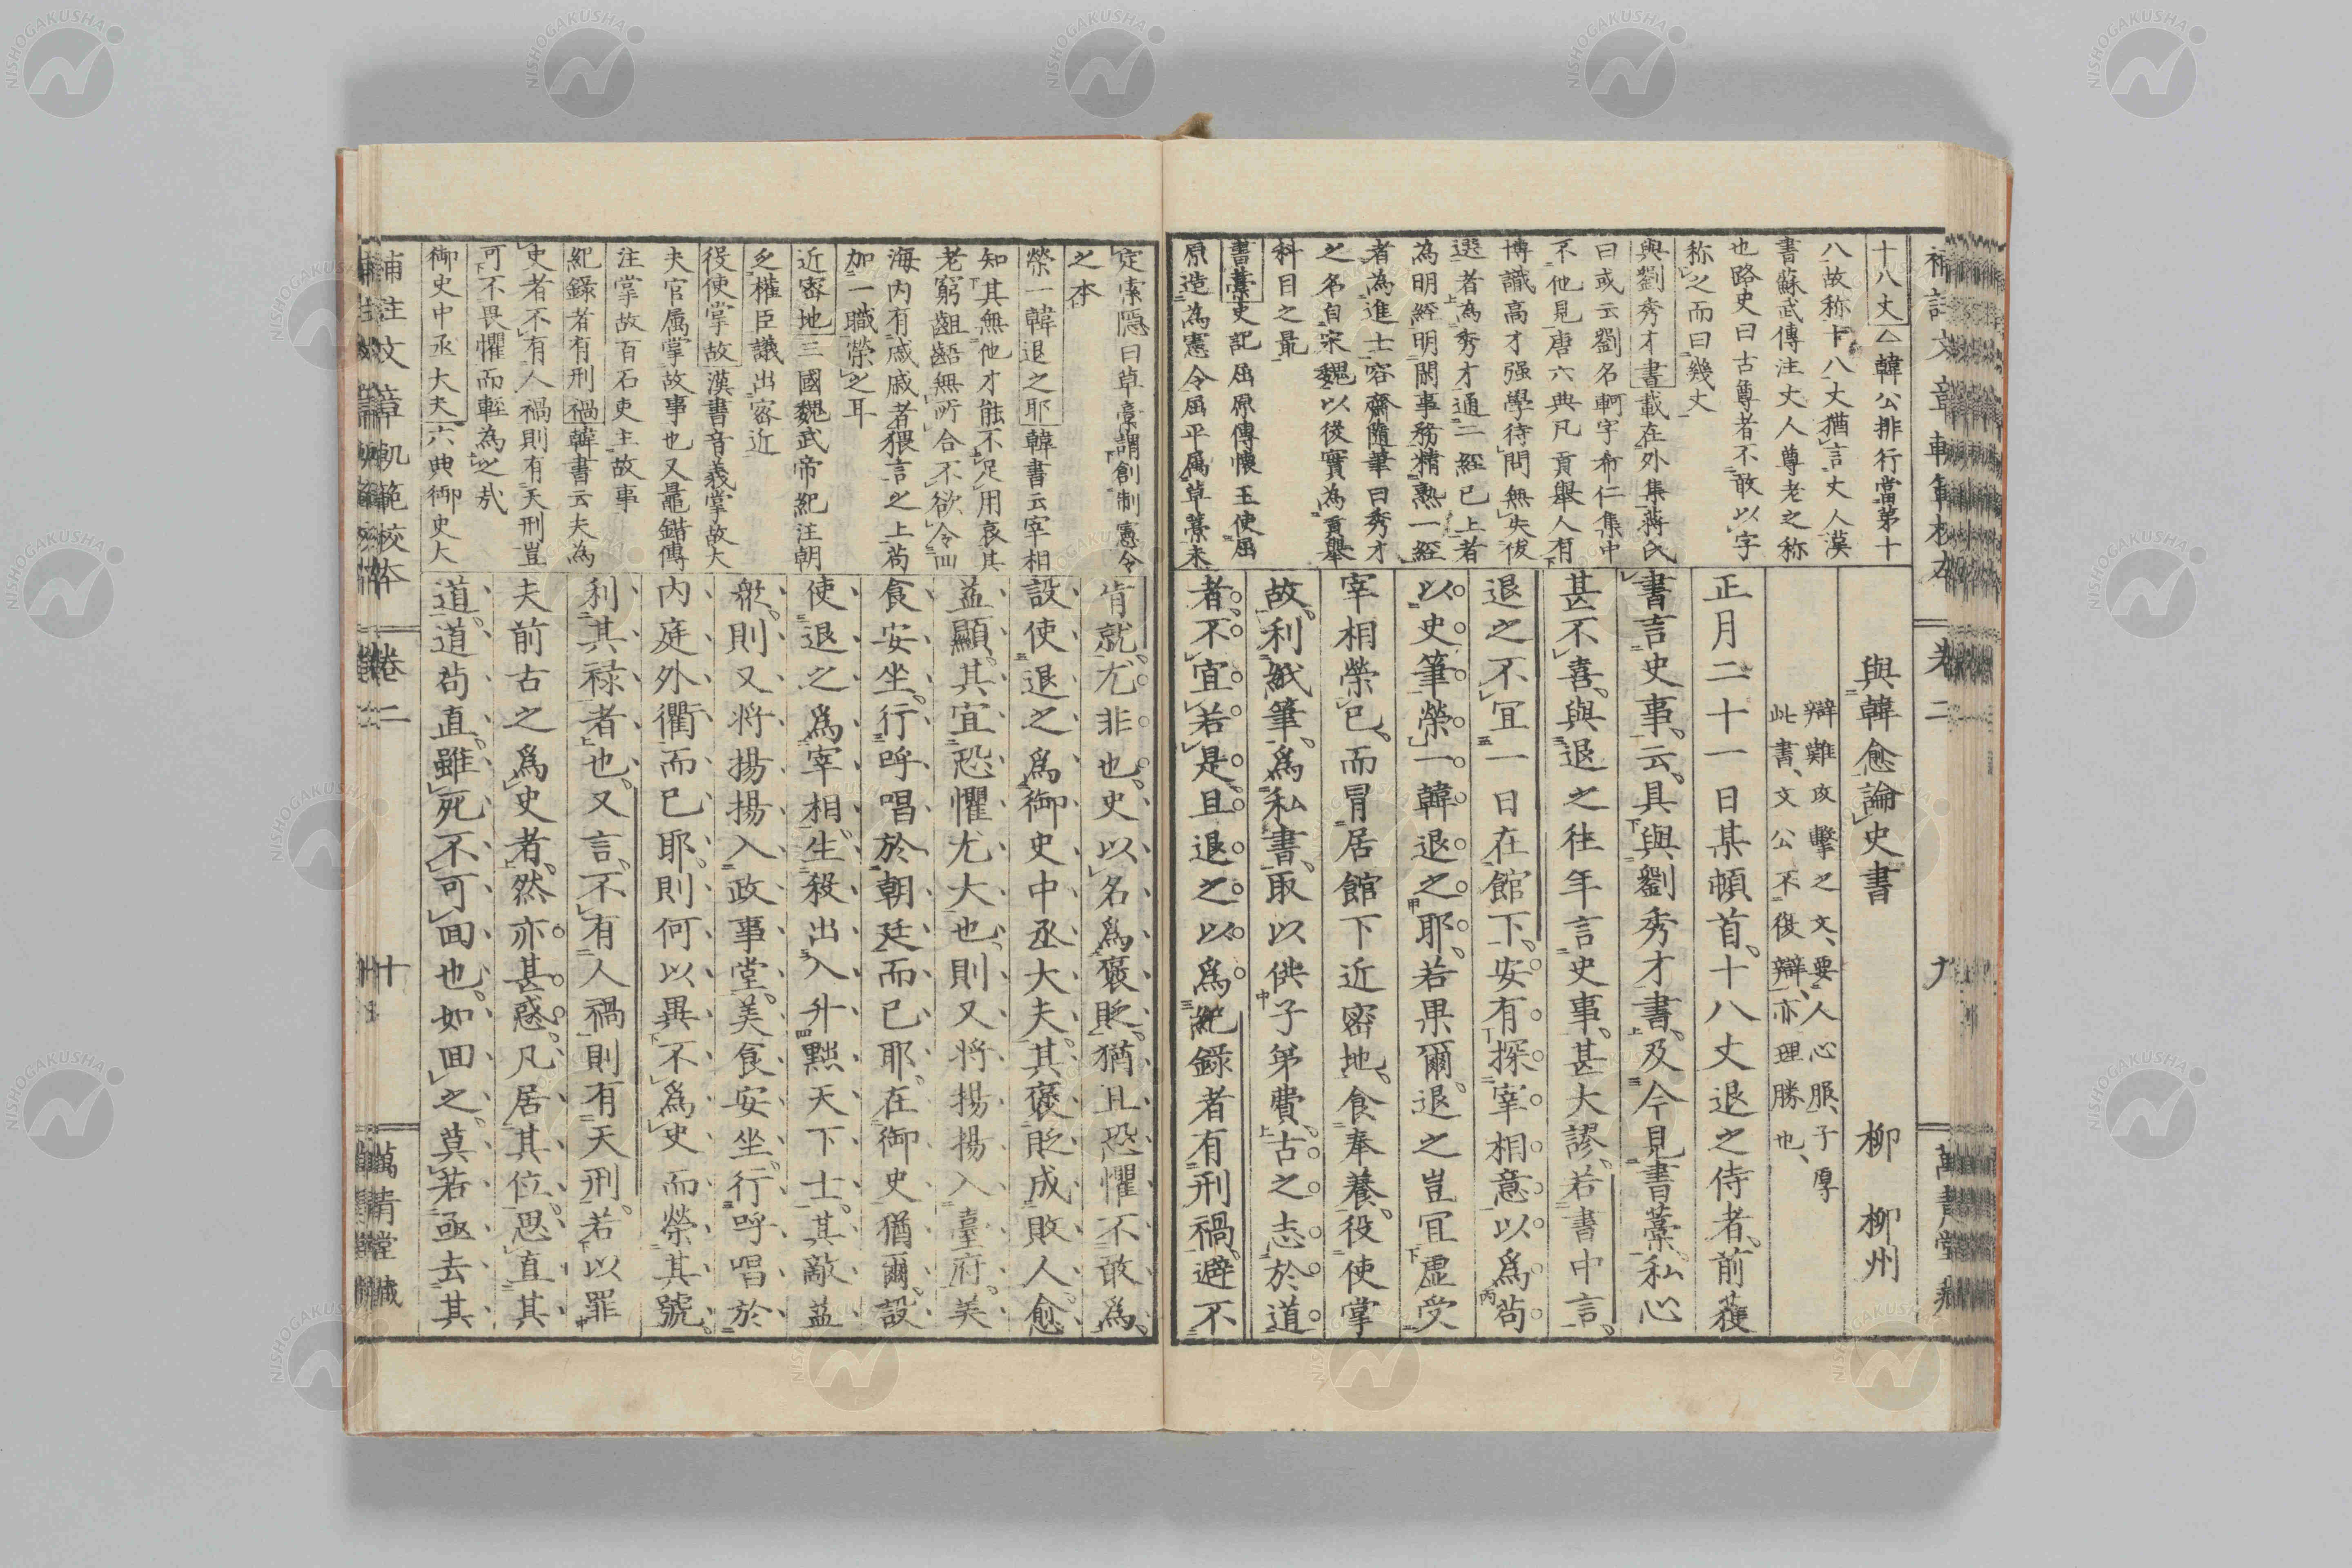 十八丈 韓公排行當第十
八故称十八丈猶言丈人漢
書蘇武傳注丈人尊老之称
也路史曰古尊者不敢以字
称之而曰幾丈
與劉秀才書載在外集蔣氏
曰或云劉名軻字希仁集中
不他見唐六典凡貢舉人有
博識高才强學待問無失俊
選者為秀才通二經已上者
為明經明閑事務精熟一經
者為進士容齋隨筆曰秀才
之名自宋魏以後實為貢舉
科目之最
書藁史記屈原傳懷王使屈
原造為憲令屈平属草藁未
與韓愈論史書 柳柳州
辯難攻擊之文、要人心服、子厚
此書、文公不復辯、亦理勝也、
正月二十一日某頓首。十八丈退之侍者。前獲
書言史事。云。具與劉秀才書。及今見書藁。私心
甚不喜。與退之往年言史事。甚大謬。若書中言。
退之不宜一日在館下。安有探宰相意以爲苟
以史筆榮一韓退之耶。若果爾。退之豈冝虚受
宰相榮已。而冒居館下近密地。食奉養。役使掌
故。利紙筆。爲私書。取以供子弟費。古之志於道
者。不宜若是。且退之以爲紀錄者有刑禍。避不
補註文章軌範校本 卷二 九 萬青堂藏
定索隠曰草藁謂創制憲令
之本
榮一韓退之耶 韓書云宰相
知其無他才能不足用哀其
老窮齟齬無所合不欲令四
海内有戚戚者猥言之上苟
加一職榮之耳
近密地 三國魏武帝紀注朝
之權臣議出密近
役使掌故 漢書音義掌故大
夫官属掌故事也又鼂錯傳
注掌故百石吏主故事
紀錄者有刑禍 韓書云夫為
史者不有人禍則有天刑豈
可不畏懼而輕為之哉
御史中丞大夫 六典御史大
肯就。尤非也。史以名爲褒貶。猶且恐懼不敢爲。
設使退之爲御史中丞大夫。其褒貶成敗人愈
益顯。其宜恐懼尤大也。則又将揚揚入臺府。美
食安坐。行呼唱於朝廷而已耶。在御史猶爾。設
使退之爲宰相。生殺出入升黜天下士。其敵益
衆。則又将揚揚入政事堂。美食安坐。行呼唱於
内庭外衢而已耶。則何以異不爲史而榮其號。
利其禄者也。又言。不有人禍。則有天刑。若以罪
夫前古之爲史者。然亦甚惑。凡居其位。思直其
道。道苟直。雖死不可回也。如回之。莫若亟去其
補註文章軌範校本 卷二 十 萬青堂藏